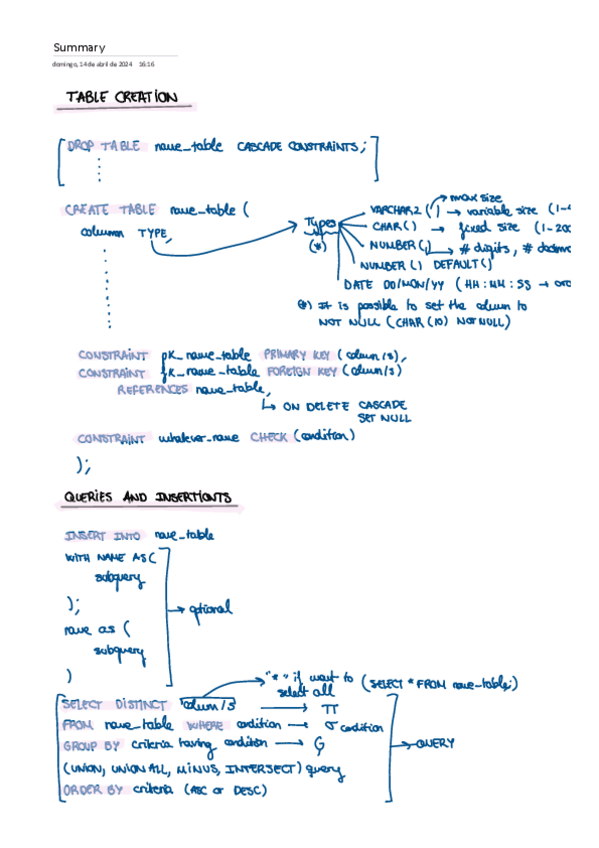 Summary
domingo, 14 de abril de 2024 16:16
TABLE CREATION
DROP TABLE name_table CASCADE CONSTRAINTS;
CREATE TABLE name_table (
column TYPE,
Types
(*)
max size
VARCHAR2 ( ) → variable size (1-
CHAR ( ) → fixed size (1-200
NUMBER ( , ) → # digits, #
NUMBER ( ) DEFAULT ( )
DATE DD/MON/YY (HH:MM:SS →
(*) It is possible to set the column to
NOT NULL (CHAR (10) NOT NULL)
CONSTRAINT pk_name_table PRIMARY KEY (column/s),
CONSTRAINT fk_name_table FOREIGN KEY (column/s)
REFERENCES name_table,
↳ ON DELETE CASCADE
SET NULL
CONSTRAINT whatever_name CHECK (condition)
);
QUERIES AND INSERTIONTS
INSERT INTO name_table
WITH NAME AS (
subquery
);
name as (
subquery
)
→ optional
"*" if want to
select all
(SELECT * FROM name_table;)
SELECT DISTINCT column/s → π
FROM name_table WHERE condition → σ condition
GROUP BY criteria having condition → G
(UNION, UNION ALL, MINUS, INTERSECT) query
ORDER BY criteria (ASC or DESC)
→ QUERY